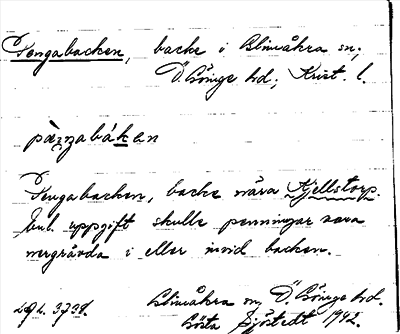 Pengabacken, backe i Glimåkra sn,
Ö. Göinge hd; Krist. l.
pàŋŋabákan
Pengabacken, backe nära Kjellstorp.
Enl. uppgift skulle penningar vara
nergrävda i eller invid backen.
Glimåkra sn, Ö. Göinge hd.
LAL. 3738. Gösta Sjöstedt 1942.